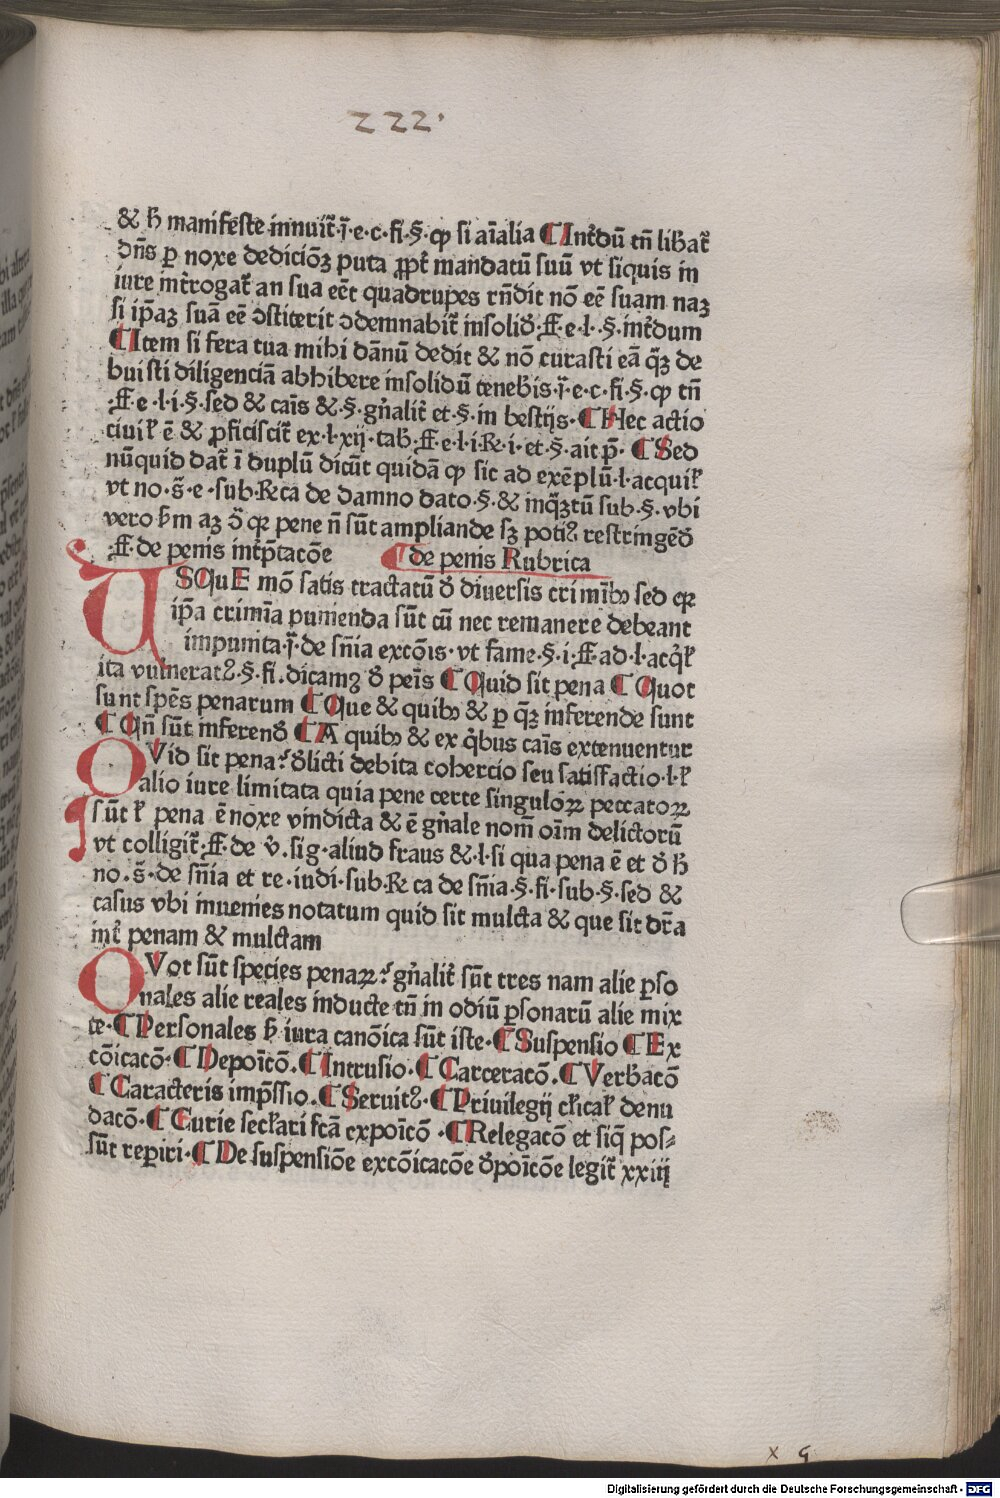 222.
& ħ manifeste innuit᷑·ī·e·c·fi·§·ꝙ si aīalia ¶Int᷑dū tn̄ lib̄at᷑
dn̄s ꝑ noxe dedicōꝫ puta ꝓpt᷑ mandatū suū vt siquis in
iure int᷑rogat᷑ an sua eēt quadrupes rn̄dit nō eē suam naꝫ
si ip̄aꝫ suā eē ↄstiterit ↄdemnabit᷑ insolid̄·ff·e·l·§·int᷑dum
¶Item si fera tua mihi dānū dedit & nō curasti eā q̄ꝫ de
buisti diligenciā abhibere insolidū teneb̄is·ī·e·c·fi·§·ꝙ tn̄
·ff·e·l·i·§·sed & caīs &·§·gn̄alit᷑ et·§·in bestijs·¶Hec actio
ciuil̄ ē & ꝓficiscit᷑ ex·l·xij·tab̄·ff·e·l·i·R·i·et·§·ait p̄·¶Sed
nūquid dat᷑ ī duplū dicūt quidā ꝙ sic ad exēplū·l·acquil̄
vt no·s̄·e·sub·R·ca de damno dato·§·& inq̄ꝫtū sub·§·vbi
vero b̄m aꝫ d̄ qꝛ pene n̄ sūt ampliande sꝫ poti9 restringēd̄
·ff·de penis int᷑p̄tacōe ¶de penis Rubrica
VSQuE mō satis tractatū d̄ diuersis crimīb9 sed qꝛ
ip̄a crimīa punienda sūt cū nec remanere debeant
impunita·ff·de sn̄ia excōis·vt fame·§·i·ff·ad·l·acq̄l̄
ita vulnerat9·§·fi·dicamꝫ d̄ peīs ¶Quid sit pena ¶Quot
sunt spēs penarum ¶Que & quib9 & ꝑ q̄ꝫ inferende sunt
¶Qn̄ sūt inferend̄ ¶A quib9 & ex q̄bus caīs extenuentur
QVid sit pena? d̄licti debita cohercio seu satisfactio·l·l̄
alio iure limitata quia pene certe singuloꝝ peccatoꝝ
sūt l̄ pena ē noxe vindicta & ē gn̄ale nom̄ oīm delictorū
vt colligit᷑·ff·de v̄·sig·aliud fraus &·l·si qua pena ē et d̄ ħ
no·s̄·de sn̄ia et re·iudi·sub·R ca de sn̄ia·§·fi·sub·§·sed &
casus vbi inuenies notatum quid sit mulcta & que sit dr̄a
int᷑ penam & mulctam
QVot sūt species penaꝝ? gn̄alit᷑ sūt tres nam alie ꝑso
nales alie reales inducte tn̄ in odiū ꝑsonarū alie mix
te·¶Personales b̄ iura canōica sūt iste·¶Suspensio ¶Ex
cōicacō·¶Depoīcō·¶Intrusio·¶Carceracō·¶Verb̄acō
¶Caracteris imp̄ssio·¶Seruit9·¶Priuilegij cl̄ical̄ denu
dacō·¶Curie secl̄ari fcā expoīcō·¶Relegacō et siq̄ pos⸗
sūt reꝑiri·¶De suspensiōe excōicacōe d̄poīcōe legit᷑ xxiij
x 5
Digitalisierung gefördert durch die Deutsche Forschungsgemeinschaft · DFG